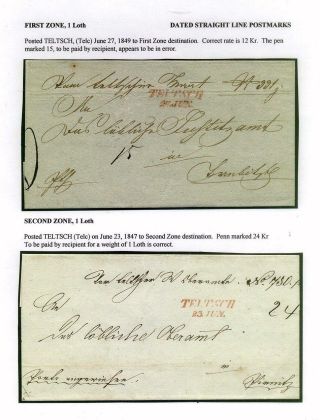 FIRST ZONE, 1 Loth DATED STRAIGHT LINE POSTMARKS
Posted TELTSCH, (Telc) June 27, 1849 to First Zone destination. Correct rate is 12 Kr. The pen
marked 15, to be paid by recipient, appears to be in error.
Vom
TELTSCH
27. JUN.
An
Das löbliche
15
in
SECOND ZONE, 1 Loth
Posted TELTSCH (Telc) on June 23, 1847 to Second Zone destination. Penn marked 24 Kr
To be paid by recipient for a weight of 1 Loth is correct.
TELTSCH
23. JUN.
24
An
Das löbliche Oberamt
in